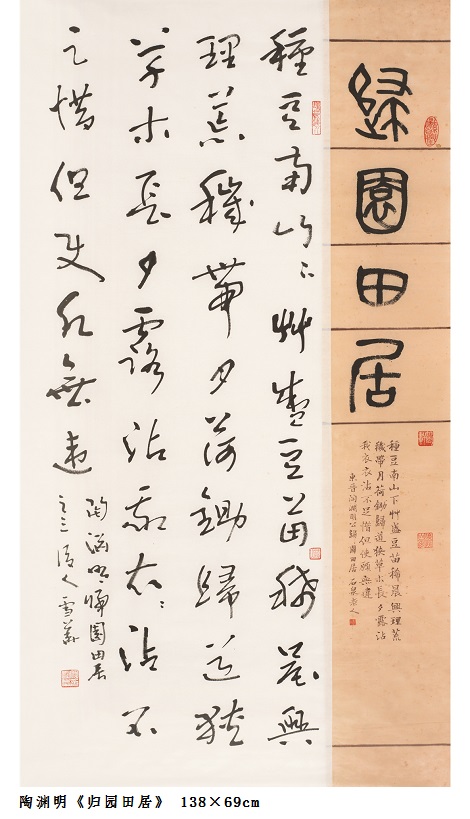 歸園田居
種豆南山下艸盛豆苗稀晨興理荒
穢帶月荷鋤歸道狹草木長夕露沾
我衣衣沾不足惜但使願無違
東晉陶淵明公歸園田居 石泉人
種豆南山下艸盛豆苗稀晨興
理荒穢帶月荷鋤歸道狹
草木長夕露沾我衣衣沾不
足惜但使願無違
陶淵明歸園田居
之三 人雪
陶渊明《归园田居》 138×69cm